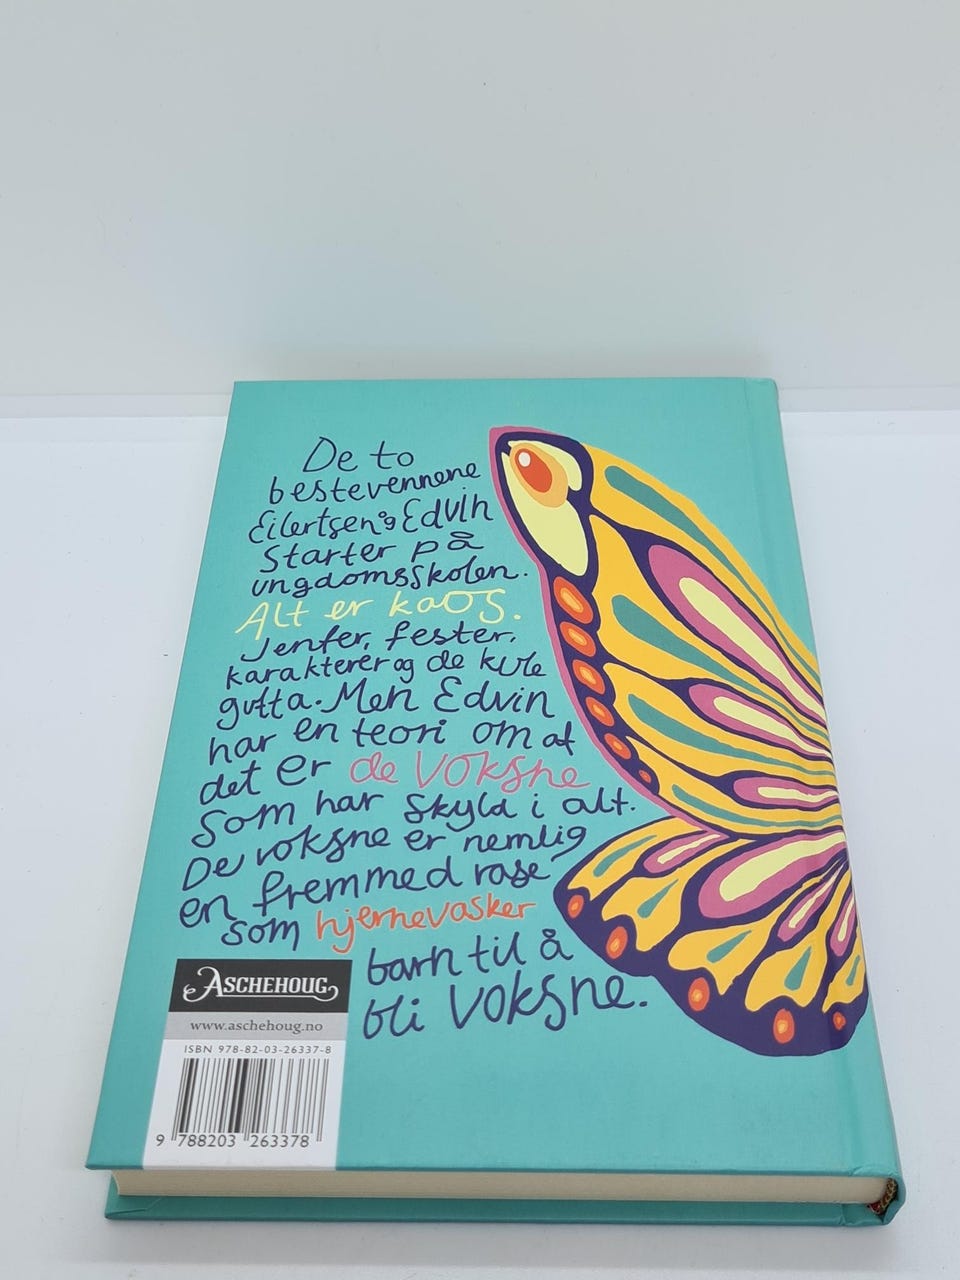 De to
bestevennene
Eilertsen og Edvin
Starter på
ungdomsskolen.
Alt er kaos.
Jenter, fester,
karakterer og de kule
gutta. Men Edvin
har en teori om at
det er de voksne
som har skyld i alt.
De voksne er nemlig
en fremmed rase
som hjernevasker
barn til å
bli voksne.
ASCHEHOUG
www.aschehoug.no
ISBN 978-82-03-26337-8
9 788203 263378